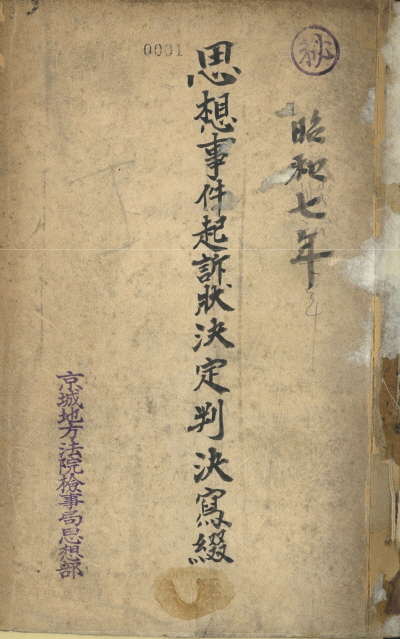 秘
昭和七年
0001
思想事件起訴狀決定判決寫綴
京城地方法院檢事局思想部